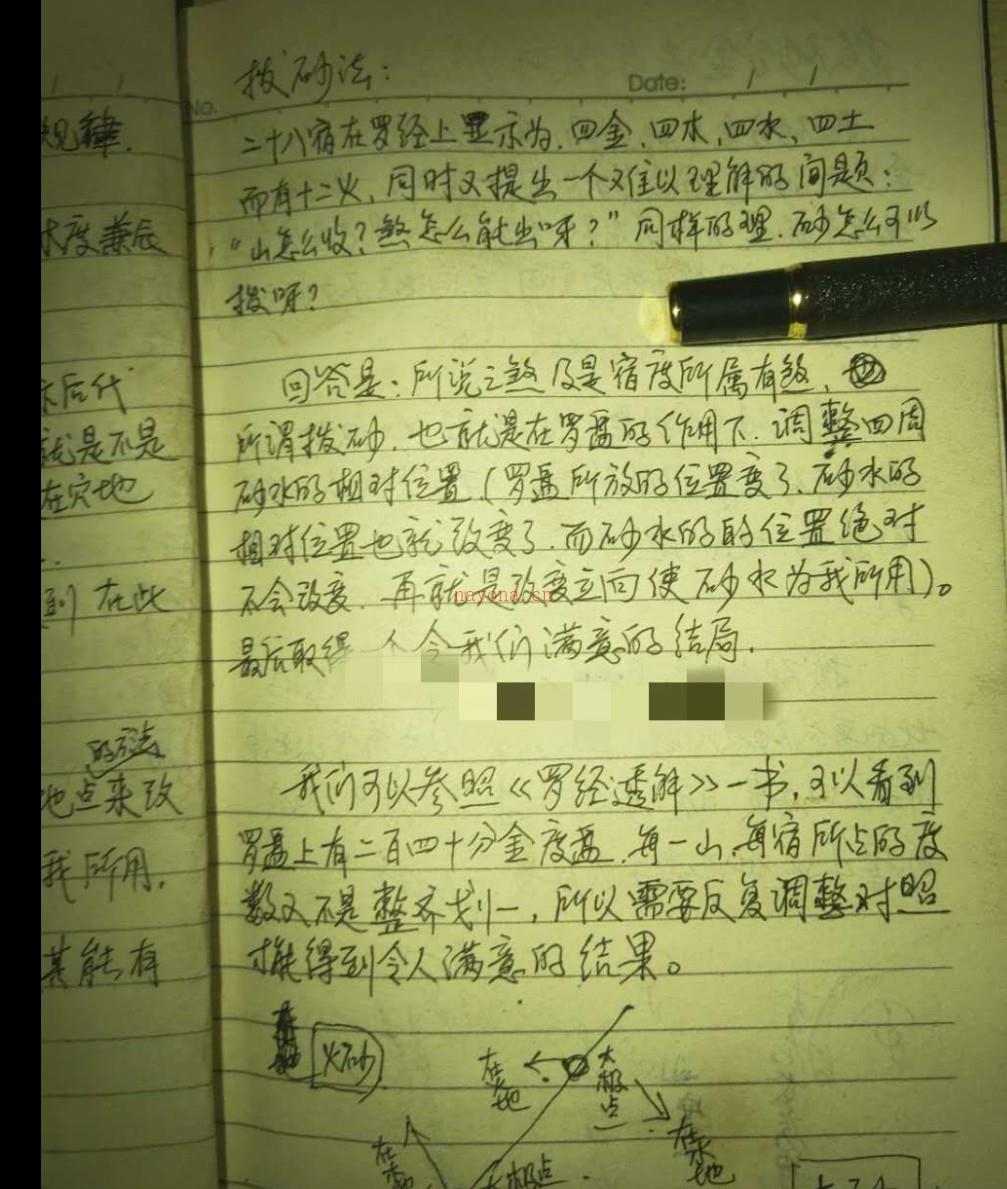 规律.
木度兼辰
后代
就是不是
在穴地
到 在此
的方法
地点来改
我所用.
其能有
No.
Date: / /
拨砂法:
二十八宿在罗经上显示为.四金.四木,四水,四土
而有十二火,同时又提出一个难以理解的问题:
"山怎么收?煞怎么能出呀?"同样的理.砂怎么可以
拨呀?
回答是:所说之煞及是宿度所属有煞.
所谓拨砂.也就是在罗盘的作用下.调整四周
砂水的相对位置(罗盘所放的位置变了.砂水的
相对位置也就改变了.而砂水的的位置绝对
不会改变.再就是改变立向使砂水为我所用)。
nayona.cn
最后取得 个令我们满意的结局.
我们可以参照《罗经透解》一书,可以看到
罗盘上有二百四十分金度盘.每一山.每宿所占的度
数又不是整齐划一,所以需要反复调整对照
才能得到令人满意的结果。
火砂
太极点
在水地
太极点.